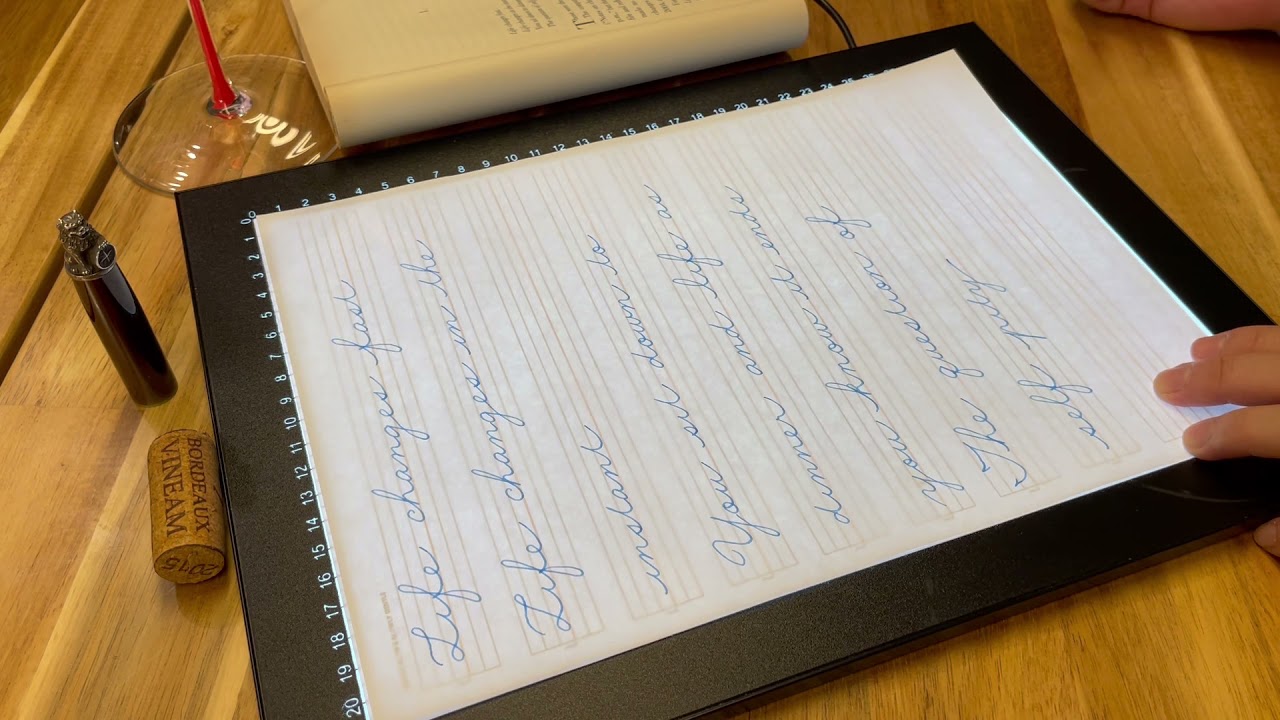 Life changes fast
Life changes in the
instant
You sit down to
dinner and life as
you know it ends
The question of
self pity
BORDEAUX
VINEAM
2015
0 1 2 3 4 5 6 7 8 9 10 11 12 13 14 15 16 17 18 19 20 21 22 23 24 25
1 2 3 4 5 6 7 8 9 10 11 12 13 14 15 16 17 18 19 20